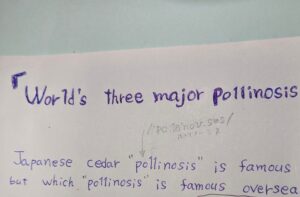 「World's three major pollinosis
Japanese cedar "pollinosis" is famous
but which "pollinosis" is famous oversea